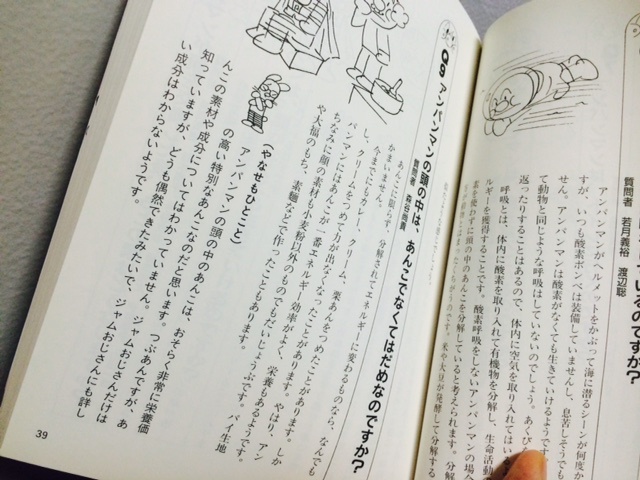 のですか?
質問者　若月義裕　渡辺聡
アンパンマンがヘルメットをかぶって海に潜るシーンが何度か
すが、いつも酸素ボンベは装備していませんし、息苦しそうでも
せん。アンパンマンは酸素がなくても生きていけるようです
て動物と同じような呼吸はしていないのでしょう。あくび
返ったりすることはあるので、体内に空気を取り入れてはい
呼吸とは、体内に酸素を取り入れて有機物を分解し、生命活動
ルギーを獲得することです。酸素呼吸をしないアンパンマンの場
素を使わずに頭の中のあんこを分解していると考えられます。分解
米や大豆が発酵して分解する
Q9 アンパンマンの頭の中は、あんこでなくてはだめなのですか?
質問者　森谷尚貴
あんこに限らず、分解されてエネルギーに変わるものなら、なんでも
かまいません。
今までにもカレー、クリーム、栗あんをつめたことがあります。しか
し、クリームをつめて力が出なくなったことがあります。やはり、アン
パンマンにはあんこが一番エネルギー効率がよく、栄養もあるようです。
ちなみに顔の素材も小麦粉以外のものでもだいじょうぶです。パイ生地
や大福のもち、素麺などで作ったこともあります。
(やなせもひとこと)
アンパンマンの頭の中のあんこは、おそらく非常に栄養価
の高い特別なあんこなのだと思います。つぶあんですが、あ
んこの素材や成分についてはわかっていません。ジャムおじさんだけは
知っていますが、どうも偶然できたみたいで、ジャムおじさんにも詳し
い成分はわからないようです。
39